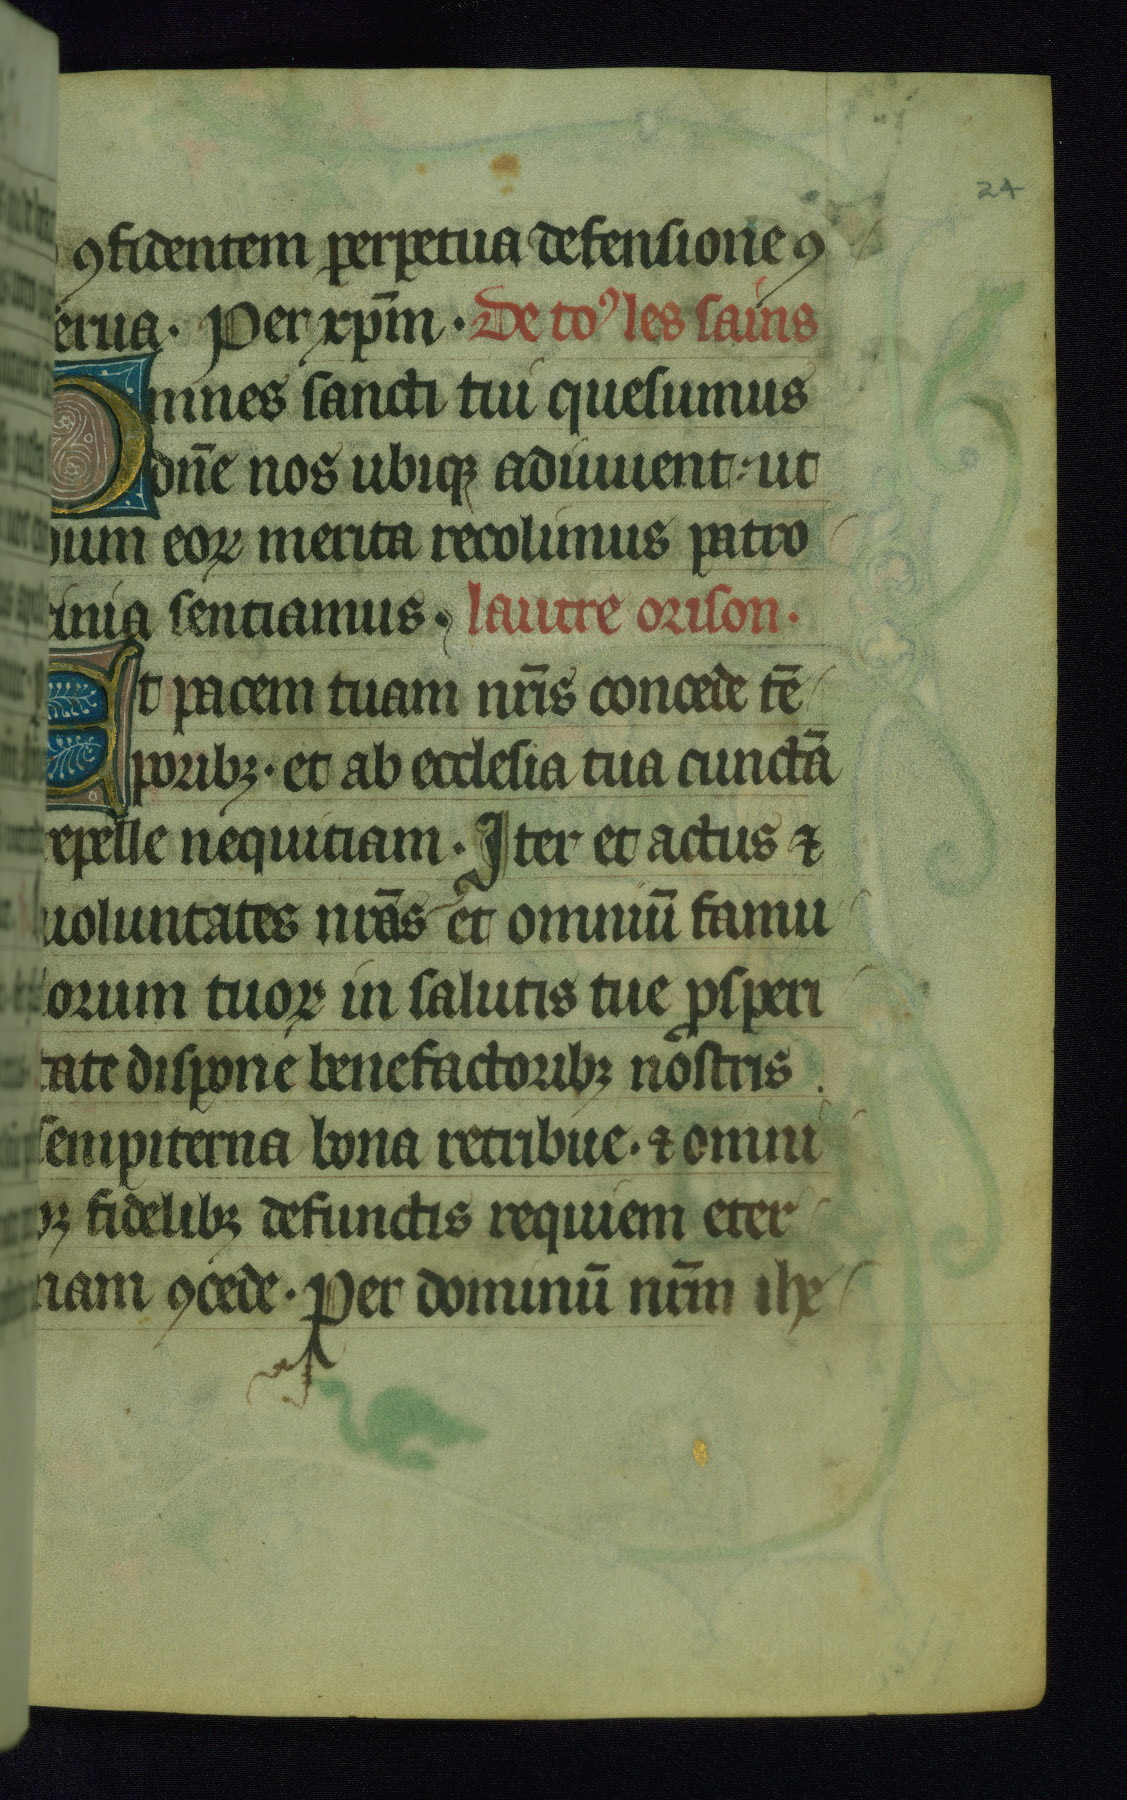 24
ꝯfidentem perpetua defensione ꝯ
erua. Per xp̄m. De to⁹ les sains
Omnes sancti tui quesumus
dn̄e nos ubiqꝫ adiuuent: ut
dum eoꝝ merita recolimus patro
cinia sentiamus. lautre orison.
Et pacem tuam nr̄is concede tē
poribꝫ. et ab ecclesia tua cunctā
repelle nequitiam. Iter et actus ⁊
uoluntates nr̄as et omniū famu
lorum tuoꝝ in salutis tue ꝓsperi
tate dispone benefactoribꝫ nostris
sempiterna bona retribue. ⁊ omni
bꝫ fidelibꝫ defunctis requiem eter
nam ꝯcede. Per dominū nr̄m ihc